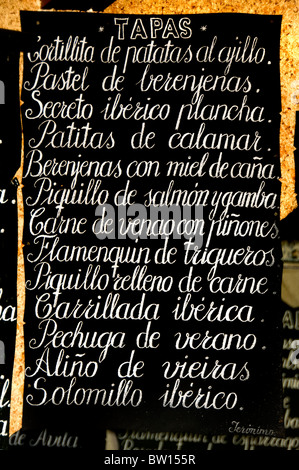 * TAPAS *
Tortillita de patatas al ajillo.
Pastel de berenjenas.
Secreto ibérico plancha.
Patitas de calamar.
Berenjenas con miel de caña.
Piquillo de salmón y gamba.
Carne de venao con piñones.
Flamenquin de trigueros
Piquillo relleno de carne.
Carrillada ibérica.
Pechuga de verano.
Aliño de vieiras
Solomillo ibérico.
Jerónimo
alamy
Image ID: BW155R
www.alamy.com